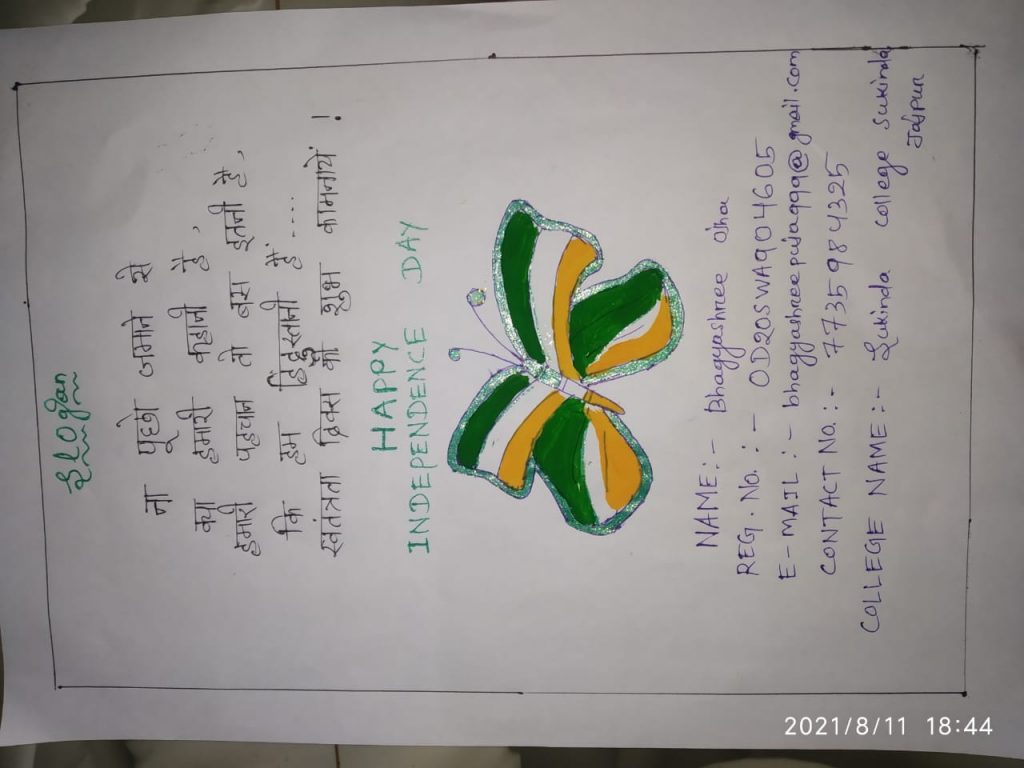 Slogan
ना पूछो जमाने से
क्या हमारी कहानी है,
हमारी पहचान तो बस इतनी है,
कि हम हिंदुस्तानी हैं.....
स्वतंत्रता दिवस की शुभ कामनायें !
HAPPY
INDEPENDENCE DAY
NAME:- Bhagyashree Ojha
REG. No. :- OD20SWA904605
E-MAIL :-
CONTACT No.:- 7735984325
COLLEGE NAME:- Sukinda college sukinda
Jajpur
2021/8/11 18:44